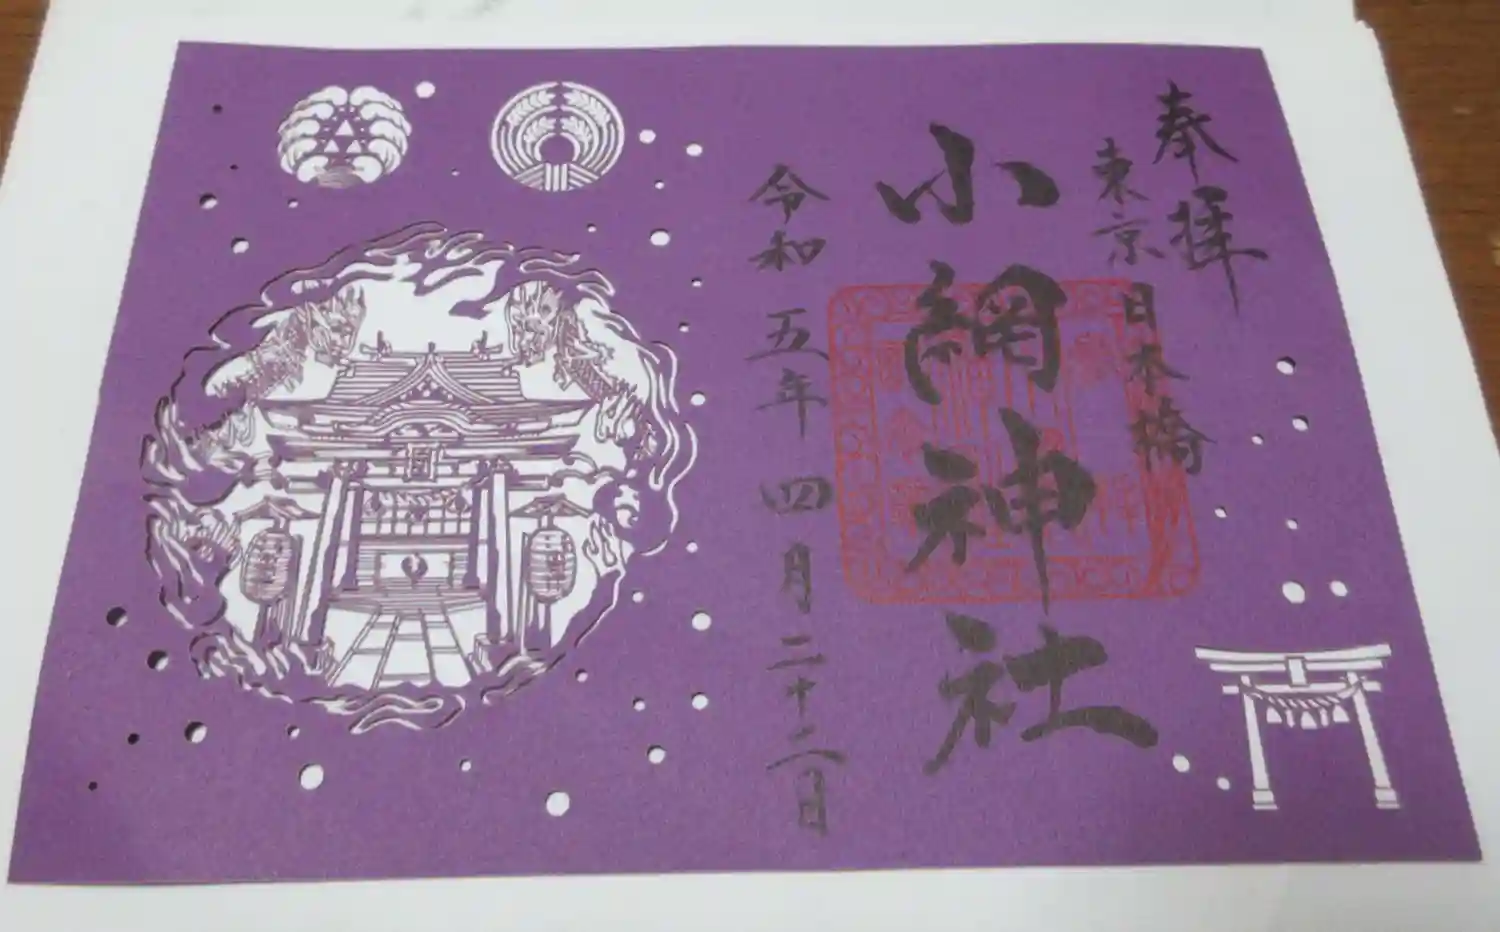 奉拝
東京日本橋
小網神社
令和五年四月二十二日